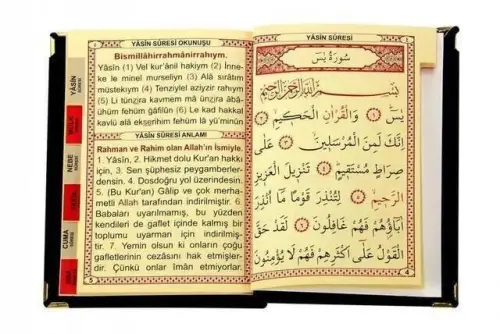 YÂSÎN SÛRESİ OKUNUŞU
Bismillâhirrahmânirrahıym.
Yâsîn (1) Vel kur'ânil hakiym (2) İnne-
ke le minel murseliyn (3) Alâ sırâtım
müstekıym (4) Tenziylel aziyzir rahıym
(5) Li tünzira kavmem mâ ünzira âbâ-
ühüm fehüm ğâfilûn (6) Le kad hakkal
kavlü alâ ekserihim fehüm lâ yü'minûn
YÂSÎN SÛRESİ ANLAMI
Rahman ve Rahim olan Allah'ın İsmiyle.
1. Yâsîn, 2. Hikmet dolu Kur'an hakkı
için, 3. Sen şüphesiz peygamberler-
densin. 4. Dosdoğru yol üzerindesin.
5. (Bu Kur'an) Gâlip ve çok merha-
metli Allah tarafından indirilmiştir. 6.
Babaları uyarılmamış, bu yüzden
kendileri de gaflet içinde kalmış bir
toplumu uyarman için indirilmiş-
tir. 7. Yemin olsun ki onların çoğu
gafletlerinin cezasını hak etmişler-
dir. Çünkü onlar îmân etmiyorlar.
5
YÂSİN
NEBE
CUMA
YÂSÎN SÛRESİ
سُورَةُ يٰسٓ
بِسْمِ اللّٰهِ الرَّحْمٰنِ الرَّحِيمِ
يٰسٓ ﴿١﴾ وَالْقُرْاٰنِ الْحَكِيمِ ﴿٢﴾
اِنَّكَ لَمِنَ الْمُرْسَلِينَ ﴿٣﴾ عَلٰى
صِرَاطٍ مُسْتَقِيمٍ ﴿٤﴾ تَنْزِيلَ الْعَزِيزِ
الرَّحِيمِ ﴿٥﴾ لِتُنْذِرَ قَوْمًا مَٓا اُنْذِرَ
اٰبَٓاؤُهُمْ فَهُمْ غَافِلُونَ ﴿٦﴾ لَقَدْ حَقَّ
الْقَوْلُ عَلٰٓى اَكْثَرِهِمْ فَهُمْ لَا يُؤْمِنُونَ
4